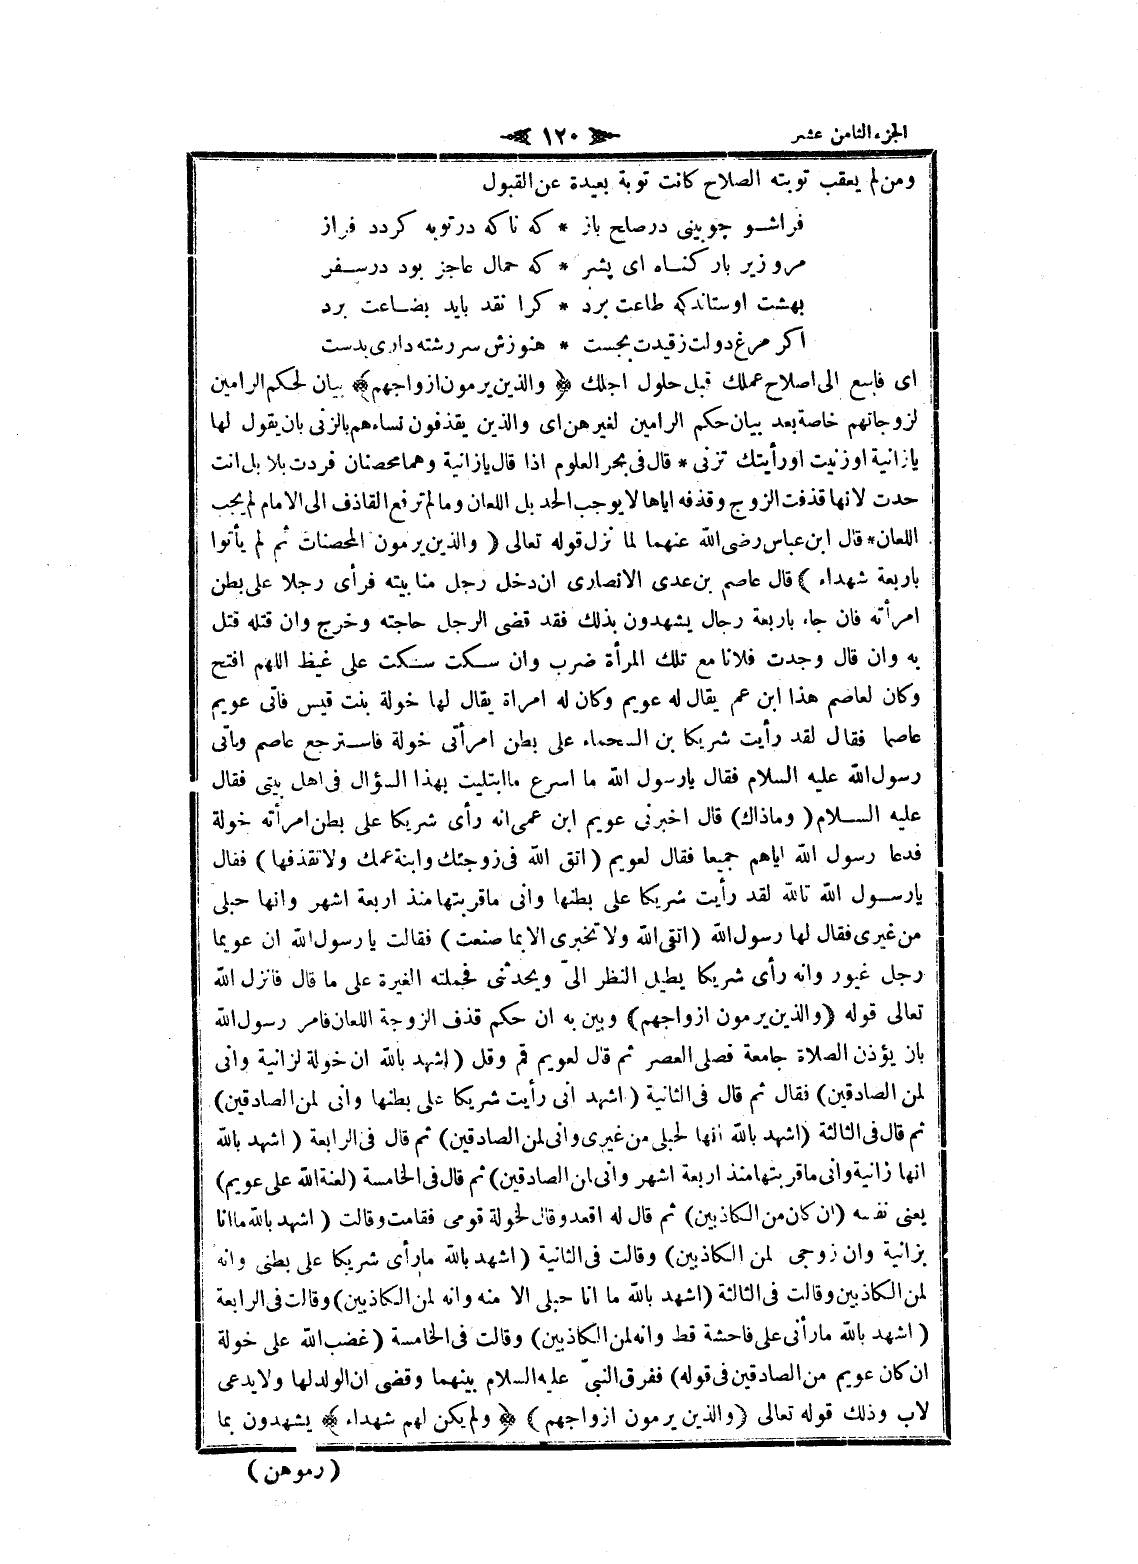 الجزء الثامن عشر
١٢٠
ومن لم يعقب توبته الصلاح كانت توبة بعيدة عن القبول
فراشو چوبينى درصلح باز * كه ناكه درتوبه كردد فراز
مرو زير بار كناه اى پسر * كه حمال عاجز بود درسفر
بهشت اوستاندكه طاعت برد * كرا نقد بايد بضاعت برد
اكر مرغ دولت زقيدت بجست * هنوزش سررشته دارى بدست
اى فاسع الى اصلاح عملك قبل حلول اجلك ﴿ والذين يرمون ازواجهم ﴾ بيان لحكم الرامين
لزوجاتهم خاصة بعد بيان حكم الرامين لغيرهن اى والذين يقذفون نساءهم بالزنى بان يقول لها
يازانية اوزنيت اورأيتك تزنى * قال فى بحر العلوم اذا قال يازانية وهما محصنان فردت بلا بل انت
حدت لانها قذفت الزوج وقذفه اياها لا يوجب الحد بل اللعان وما لم ترفع القاذف الى الامام لم يجب
اللعان* قال ابن عباس رضى الله عنهما لما نزل قوله تعالى ( والذين يرمون المحصنات ثم لم يأتوا
باربعة شهداء ) قال عاصم بن عدى الانصارى ان دخل رجل منا بيته فرأى رجلا على بطن
امرأته فان جاء باربعة رجال يشهدون بذلك فقد قضى الرجل حاجته وخرج وان قتله قتل
به وان قال وجدت فلانا مع تلك المرأة ضرب وان سكت سكت على غيظ اللهم افتح
وكان لعاصم هذا ابن عم يقال له عويم وكان له امراة يقال لها خولة بنت قيس فاتى عويم
عاصما فقال لقد رأيت شريكا بن السحماء على بطن امرأتى خولة فاسترجع عاصم وباتى
رسول الله عليه السلام فقال يارسول الله ما اسرع ماابتليت بهذا السؤال فى اهل بيتى فقال
عليه السلام ( وماذاك) قال اخبرنى عويم ابن عمى انه رأى شريكا على بطن امرأته خولة
فدعا رسول الله اياهم جميعا فقال لعويم ( اتق الله فى زوجتك وابنة عمك ولا تقذفها ) فقال
يارسول الله تالله لقد رأيت شريكا على بطنها وانى ماقربتها منذ اربعة اشهر وانها حبلى
من غيرى فقال لها رسول الله ( اتقى الله ولا تخبرى الا بما صنعت ) فقالت يارسول الله ان عويما
رجل غيور وانه رأى شريكا يطيل النظر الىّ ويحدثنى فحملته الغيرة على ما قال فانزل الله
تعالى قوله ( والذين يرمون ازواجهم ) وبين به ان حكم قذف الزوجة اللعان فامر رسول الله
بان يؤذن الصلاة جامعة فصلى العصر ثم قال لعويم قم وقل ( اشهد بالله ان خولة لزانية وانى
لمن الصادقين ) فقال ثم قال فى الثانية ( اشهد انى رأيت شريكا على بطنها وانى لمن الصادقين )
ثم قال فى الثالثة ( اشهد بالله انها لحبلى من غيرى وانى لمن الصادقين ) ثم قال فى الرابعة ( اشهد بالله
انها زانية وانى ماقربتها منذ اربعة اشهر وانى لمن الصادقين ) ثم قال فى الخامسة ( لعنة الله على عويم )
يعنى نفسه ( ان كان من الكاذبين ) ثم قال له اقعد وقال لخولة قومى فقامت وقالت ( اشهد بالله ماانا
بزانية وان زوجى لمن الكاذبين ) وقالت فى الثانية ( اشهد بالله مارأى شريكا على بطنى وانه
لمن الكاذبين وقالت فى الثالثة ( اشهد بالله ما انا حبلى الا منه وانه لمن الكاذبين ) وقالت فى الرابعة
( اشهد بالله مارأنى على فاحشة قط وانه لمن الكاذبين ) وقالت فى الخامسة ( غضب الله على خولة
ان كان عويم من الصادقين فى قوله ) ففرق النبىّ عليه السلام بينهما وقضى ان الولد لها ولا يدعى
لاب وذلك قوله تعالى ( والذين يرمون ازواجهم ) ﴿ ولم يكن لهم شهداء ﴾ يشهدون بما
( رموهن )